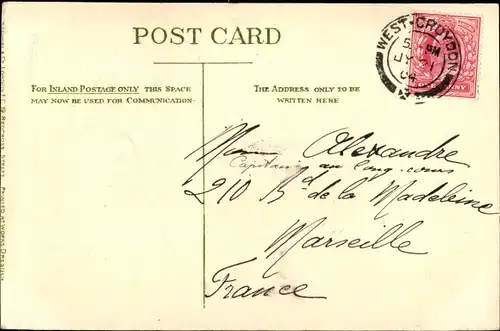 POST CARD
WEST-CROYDON
JY 21
04
FOR INLAND POSTAGE ONLY THIS SPACE
MAY NOW BE USED FOR COMMUNICATION.
THE ADDRESS ONLY TO BE
WRITTEN HERE
Alexandre
Capitaine au long-cours
210 Bd de la Madeleine
Marseille
France